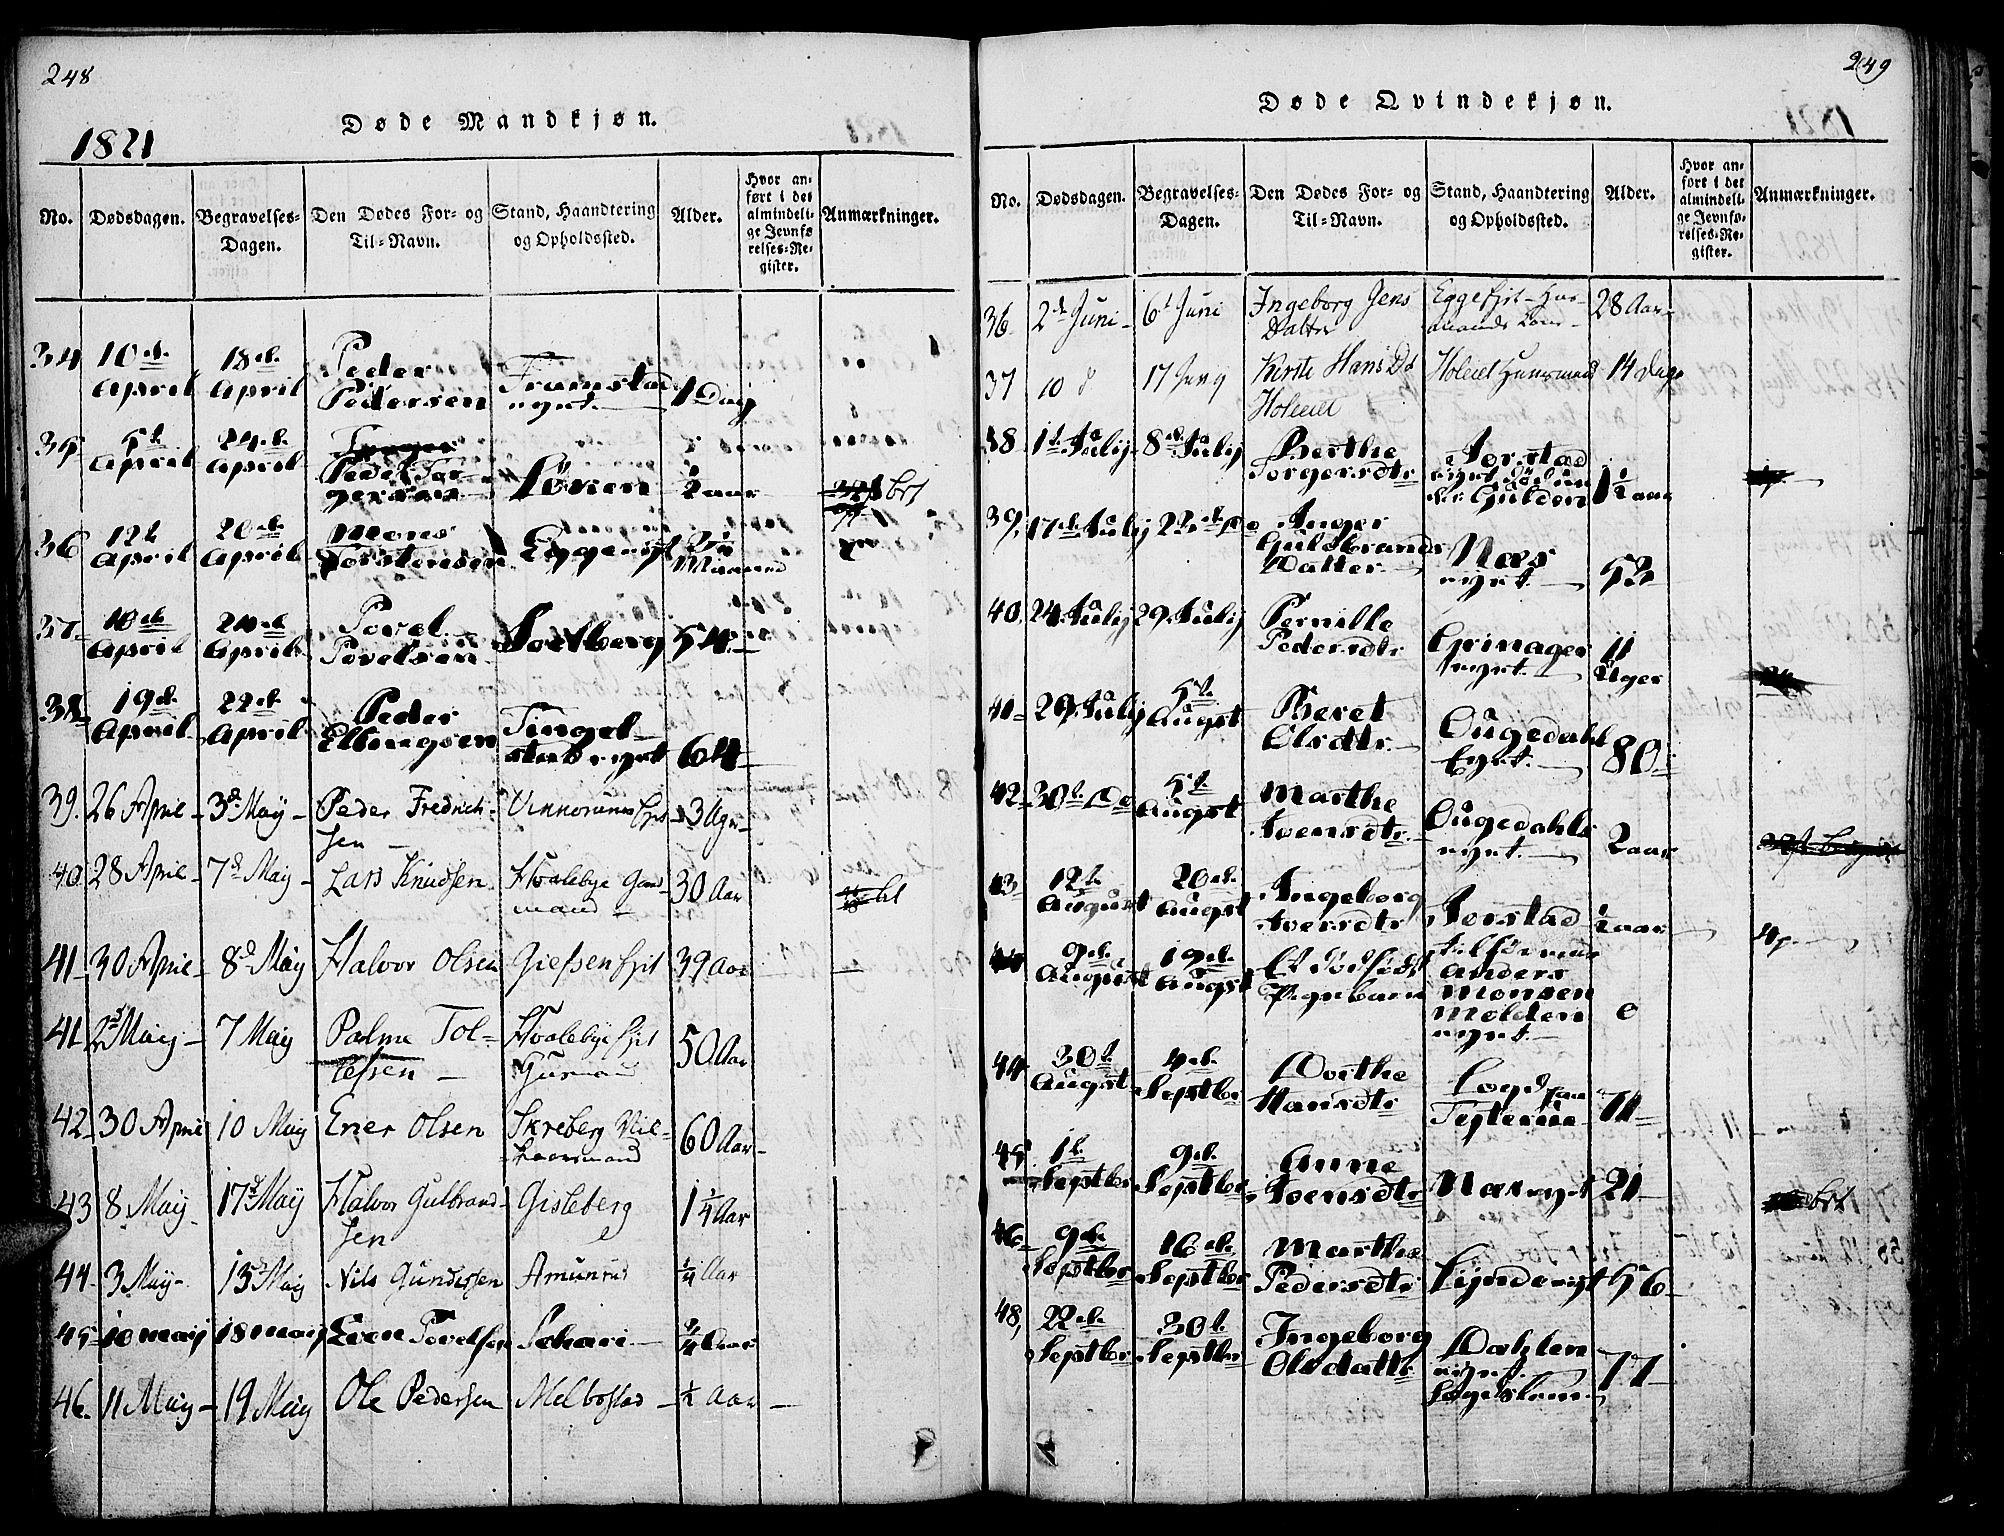 248
Døde Mandkjøn.
1821
No. Dødsdagen. Begravelses-Dagen. Den Dødes For- og Til-Navn. Stand, Haandtering og Opholdssted. Alder. Hvor anført i det almindelige Jevnførelses-Register. Anmærkninger.
34 10de April 18de April Peder Pedersen Framstad eyet 1 Dag
35 5t April 24de April Peder Torgersen ½ aar
36 12t April 20de April Mons Torstensen Maaned
37 10de April 24de April Povel Povelsen Soelberg 54
38 19de April 22de April Peder Tingelstad eyet 64
39. 26 April 3d May Peder Fredrichsen 3 Ugr
40. 28 April 7d May Lars Knudsen Hvalebye Gaardmand 30 Aar
41 30 April 8d May Halvor Olsen 39 Aar
41 2d May 7 May Palme Tollefsen Hvalebye 50 Aar
42 30 April 10 May Ener Olsen Skreberg 60 Aar
43 8 May 17d May Halvor Gulbrandsen Gisleberg 1¼ Aar
44 3 May 13d May Nils Gundersen Amunrud ¼ Aar
45 10 maij 18 maij Even Povelsen Schari ¾ aar
46. 11 May 19 May Ole Pedersen Melbostad ½ Aar
249
Døde Qvindekjøn.
No. Dødsdagen. Begravelses-Dagen. Den Dødes For- og Til-Navn. Stand, Haandtering og Opholdssted. Alder. Hvor anført i det almindelige Jevnførelses-Register. Anmærkninger.
36 2d Juni 6t Juni Ingeborg Jens Datter 28 Aar
37 10 17 Juny Kirsti Hans D. Holeiet 14 Dage
38 1t Julij 8de Julij Berthe Torgersdtr Jorstad 1½ aar
39, 17de Julij 22de Do Inger Guldbrands Datter Næs eyet 53
40. 24 Julij 29 Julij Pernille Pedersdtr Grinager eyet 11 Uger
41 29 Julij 5t Augst Beret Olsdtr Ougedahl Eyet. 80
42 30t Do 5t Augst Marthe Svensdtr Ougedahls eyet 2 aar
43 12t August 20de Augst Ingeborg Iversdtr Jorstad ½ aar
9de August 19de Augst Et Dødfødt Pigebarn Anders Monsen Molden eyet 0
44 30t Augst 4de Septbr Dorthe Hansdtr 71
45 1t Septbr 9de Septbr Anne Svensdtr Næs eyet 21
46 9de Septbr 16de Septbr Marthe Pedersdtr 56
48, 22de Septbr 30t Septbr Ingeborg Olsdatter Dahlen eyet 77